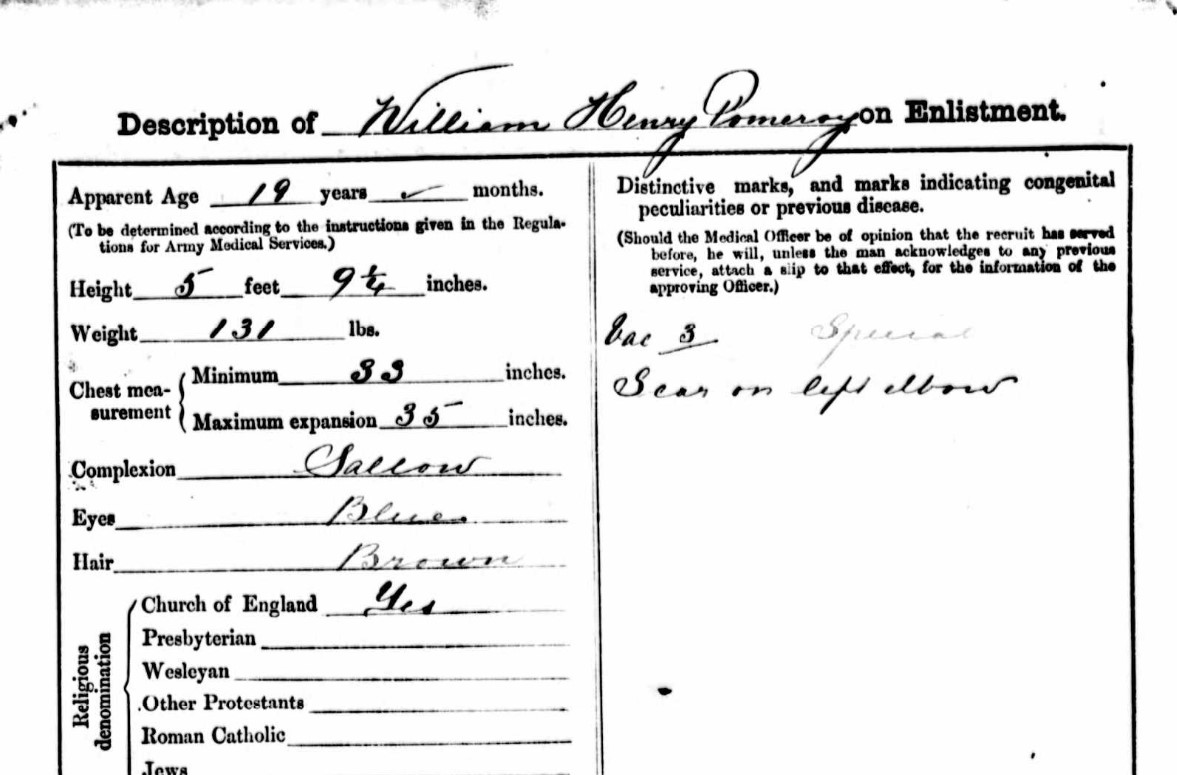 Description of William Henry Pomeroy on Enlistment.
Apparent Age 19 years ✓ months.
(To be determined according to the instructions given in the Regula-
tions for Army Medical Services.)
Height 5 feet 9 1/4 inches.
Weight 131 lbs.
Chest mea-
surement
Minimum 33 inches.
Maximum expansion 35 inches.
Complexion Sallow
Eyes Blue
Hair Brown
Religious
denomination
Church of England Yes
Presbyterian
Wesleyan
Other Protestants
Roman Catholic
Jews
Distinctive marks, and marks indicating congenital
peculiarities or previous disease.
(Should the Medical Officer be of opinion that the recruit has served
before, he will, unless the man acknowledges to any previous
service, attach a slip to that effect, for the information of the
approving Officer.)
Vac 3 Special
Scar on left elbow